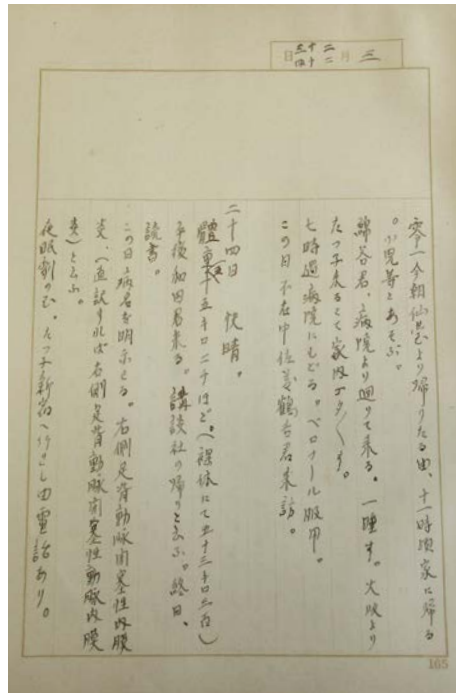 三月二十三日
二十四日
零一今朝仙台より帰りたる由、十一時頃家に帰る
。小児等とあそぶ。
綿谷君、病院より廻りて来る。一睡す。大阪より
たつ子来るとて家内ゴタ〳〵す。
七時過病院にもどる。ベロナール服用。
この日不在中佐美鶴吉君来訪。
二十四日 快晴。
體重五十五キロニナほど。(裸体にて五十三キロ三百)
午後和田君来る。講談社の帰りと云ふ。終日、
読書。
この日病名を明示さる。右側足背動脈閉塞性内膜
炎、(直訳すれば右側足背動脈閉塞性動脈内膜
炎)と云ふ。
夜眠剤のむ。たつ子新宿へ行きし由電話あり。
165